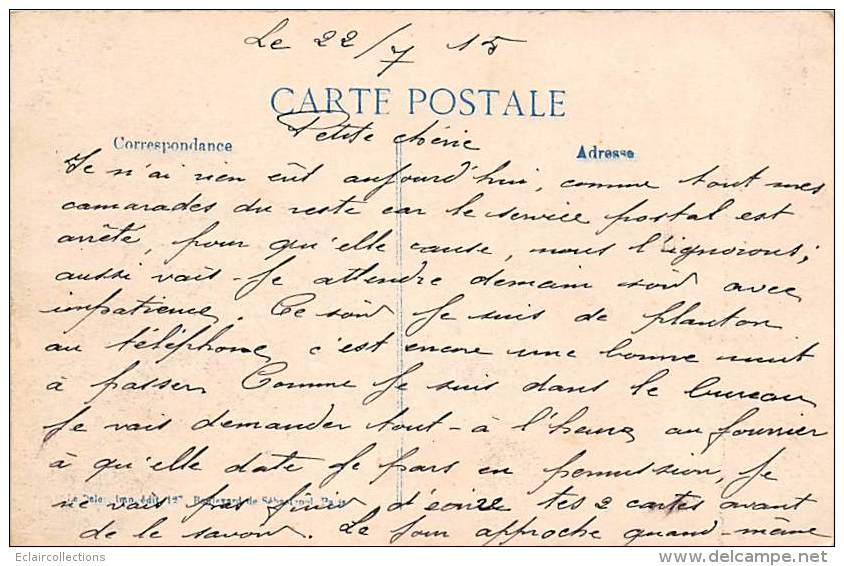 Le 22/7 15
CARTE POSTALE
Petite chérie
Correspondance
Adresse
Je n'ai rien eût aujourd'hui, comme tout mes
camarades du reste car le service postal est
arrêté, pour qu'elle cause, nous l'ignorons;
aussi vais-je attendre demain soir avec
impatience. Ce soir je suis de planton
au téléphone, c'est encore une bonne nuit
à passer. Comme je suis dans le bureau
je vais demander tout-à l'heure au fourrier
à qu'elle date je pars en permission, je
Imp. édit. 127, Boulevard de Sébastopol, Paris
ne vais pas finir d'écrire tes 2 cartes avant
de le savoir. Le jour approche quand-même
Eclaircollections
www.delcampe.net